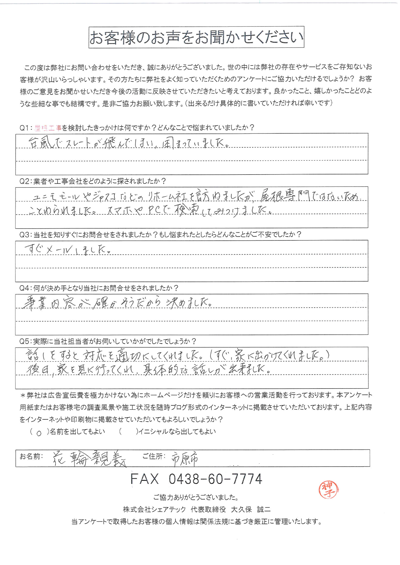 お客様のお声をお聞かせください
この度は弊社にお問い合わせをいただき、誠にありがとうございました。世の中には弊社の存在やサービスをご存知ないお
客様が沢山いらっしゃいます。その方たちに弊社をよく知っていただくためのアンケートにご協力いただけるでしょうか？ お客
様のご意見をお聞かせいただき今後の活動に反映させていただきたいと考えております。良かったこと、嬉しかったことどのよ
うな些細な事でも結構です。是非ご協力お願い致します。(出来るだけ具体的に書いていただければ幸いです)
Q1：屋根工事を検討したきっかけは何ですか？どんなことで悩まれていましたか？
台風でスレートが飛んでしまい、困まっていました。
Q2：業者や工事会社をどのように探されましたか？
ユニモモールやジャスコなどのリホーム社を訪ねましたが、屋根専門ではないため、
ことわられました。スマホやPCで検索してみつけました。
Q3：当社を知りすぐにお問合せをされましたか？もし悩まれたとしたらどんなことがご不安でしたか？
すぐメールしました。
Q4：何が決め手となり当社にお問合せをされましたか？
事業内容が確かそうだから決めました。
Q5：実際に当社担当者がお伺いしていかがでしたでしょうか？
話しをすると対応を適切にしてくれました。(すぐ、家に出かけてくれました。)
後日、家を見に行ってくれ、具体的な話しが出来ました。
＊弊社は広告宣伝費を極力かけない為にホームページだけを頼りにお客様への営業活動を行っております。本アンケート
用紙またはお客様宅の調査風景や施工状況を随時ブログ形式のインターネットに掲載させていただいております。上記内容
をインターネットや印刷物に掲載させていただいてもよろしいでしょうか？
（ ○ ）名前を出してもよい （ ）イニシャルなら出してもよい
お名前： 花輪 親義 ご住所： 市原市
FAX 0438-60-7774
ご協力ありがとうございました。
株式会社シェアテック 代表取締役 大久保 誠二
当アンケートで取得したお客様の個人情報は関係法規に基づき厳正に管理いたします。